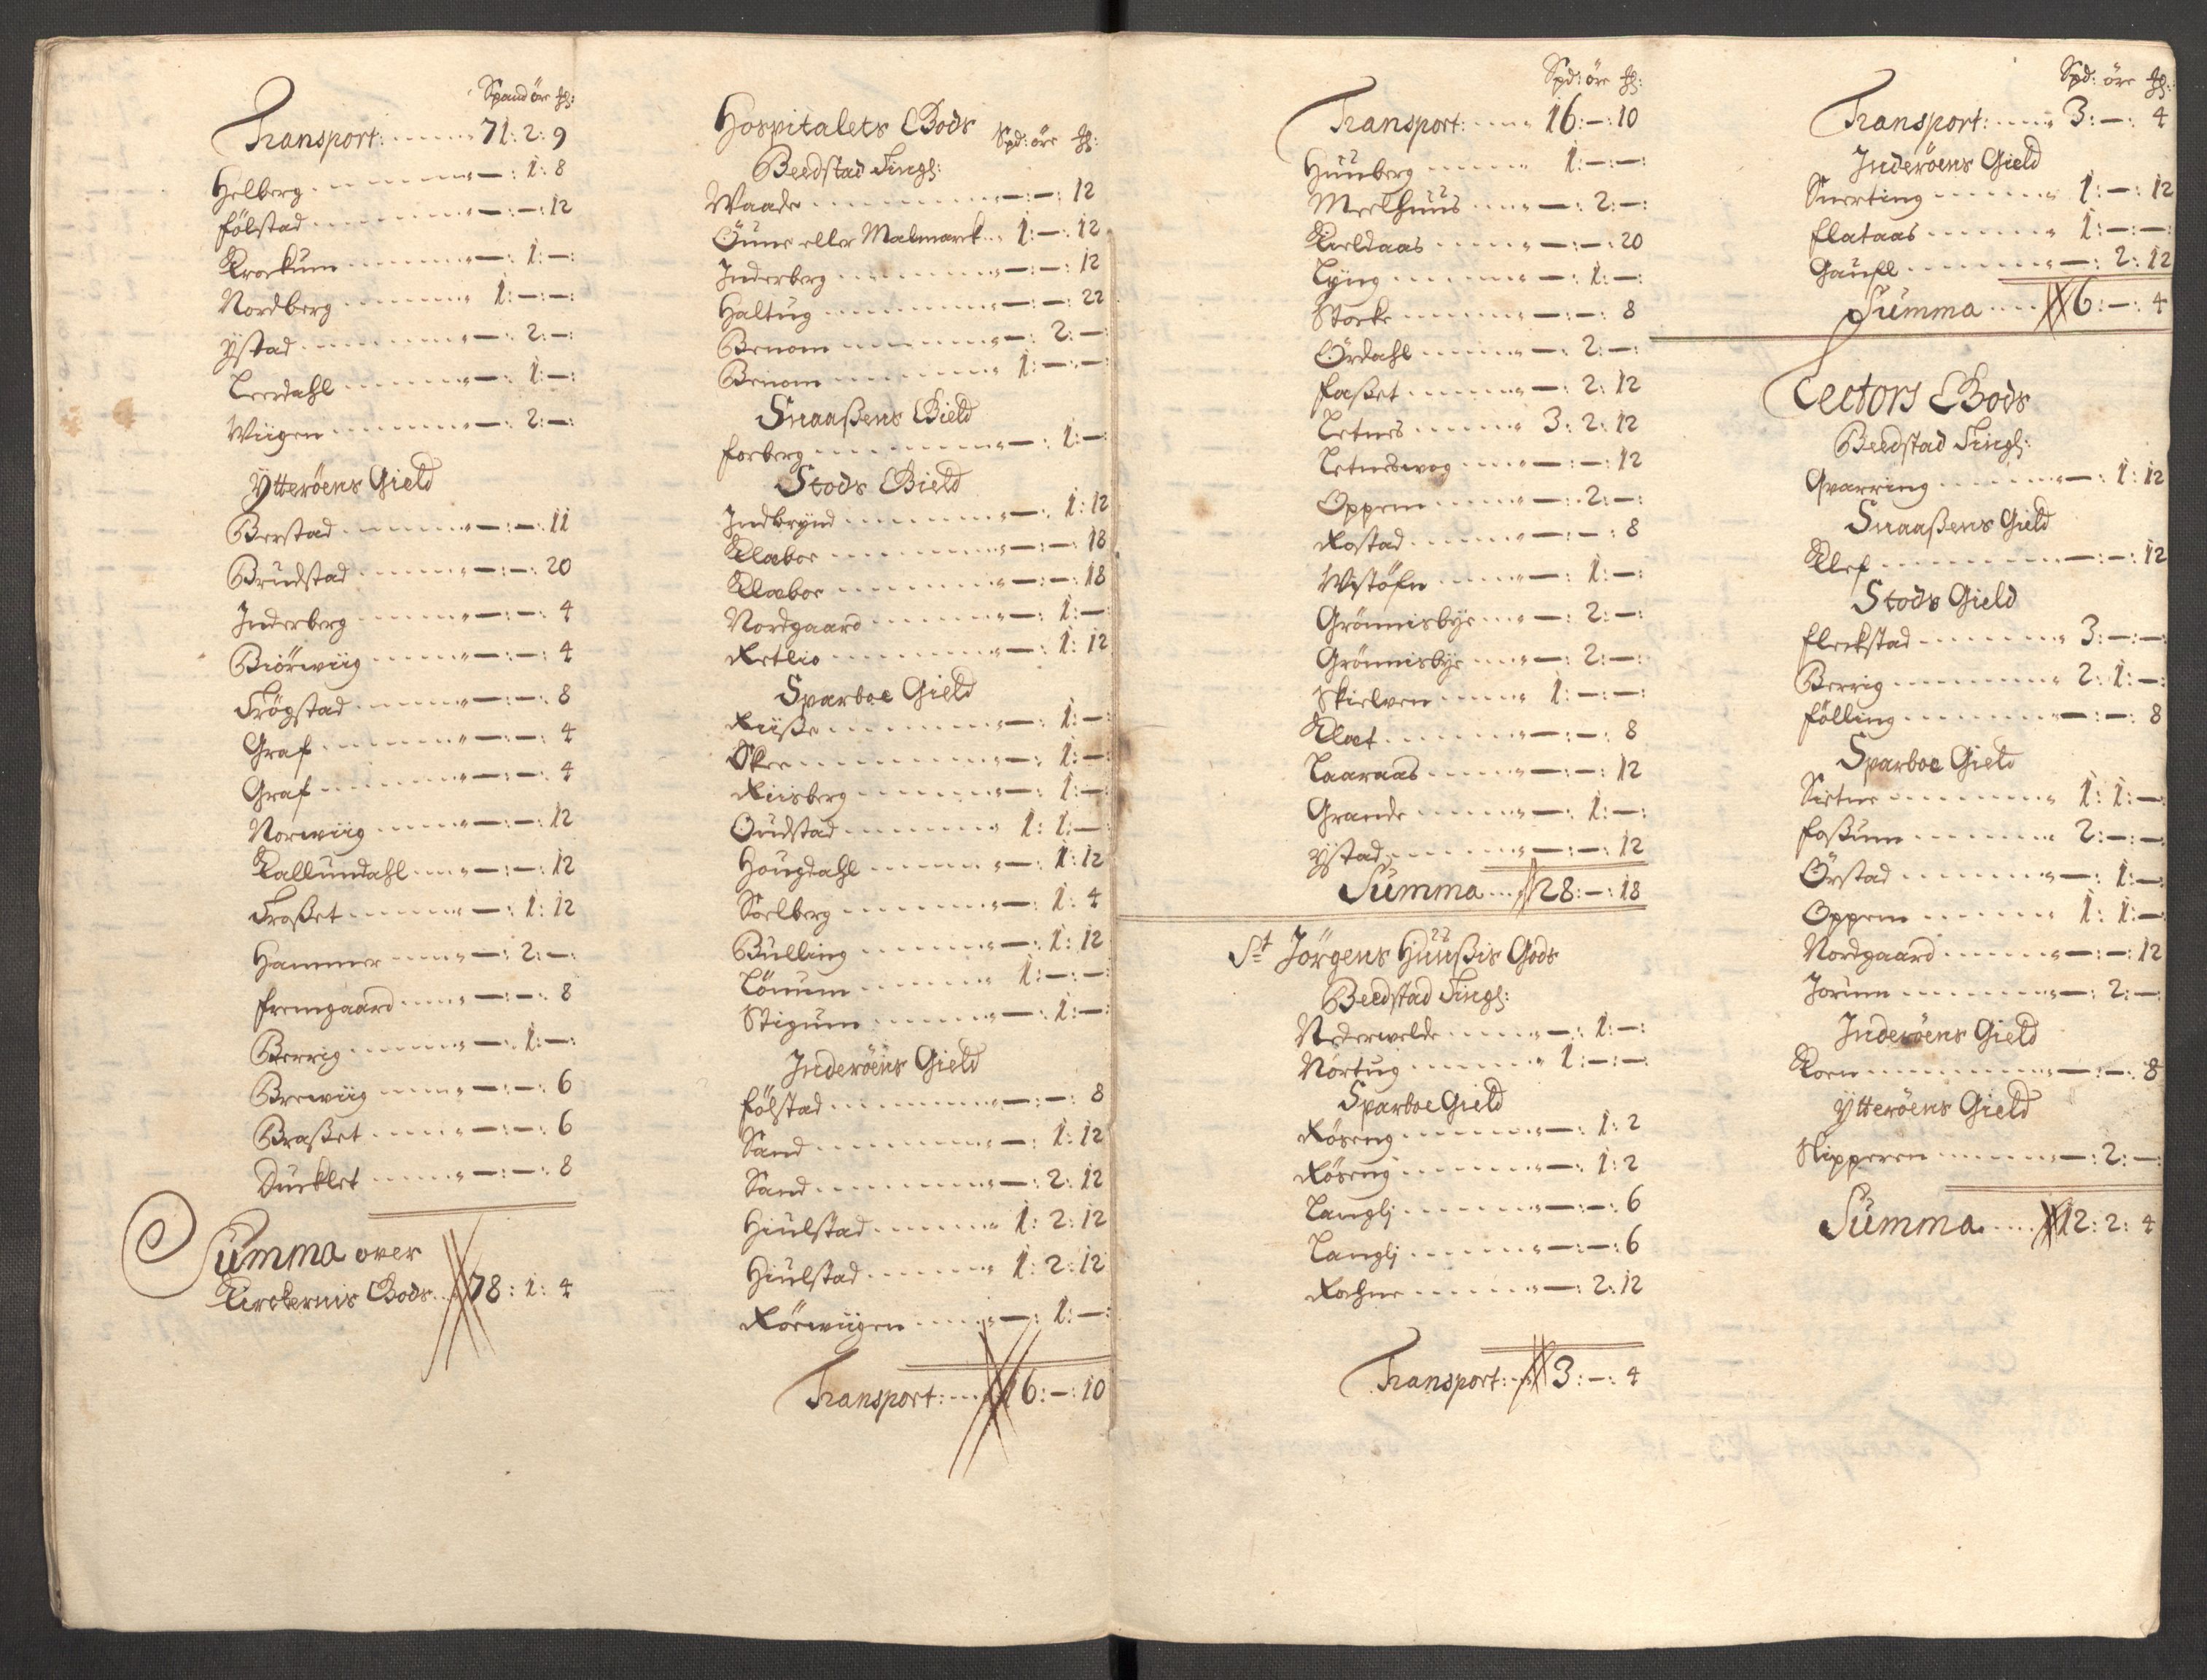 Spand öre
Transport: 71: 2: 9
Helberg —: 1: 8
fölstad —:—: 12
Krockum —: 1:—:
Nordberg 1:—:—:
Ystad —: 2:—:
Leerdahl —: 1:—:
Wiigen —: 2:—:
Ytteröens Gield
Berstad —:—: 11
Brudstad —:—: 20
Inderberg —:—: 4
Biörwiig —:—: 4
Trögstad —:—: 8
Graf —:—: 4
Graf —:—: 4
Norwiig —:—: 12
Kallundahl —:—: 12
Troßet —: 1: 12
Hammer —: 2:—:
fremgaard —:—: 8
Berrig —: 1:—:
Brewiig —:—: 6
Braßet —:—: 6
Ducklet —:—: 8
Summa over
Kirckernis Gods 78: 1: 4
Hospitalets Gods
Spd: öre
Beedstad Tingl:
Waade —:—: 12
Öune eller Malmarck 1:—: 12
Inderberg —:—: 12
Haltug —:—: 22
Benom —: 2:—:
Benom 1:—:—:
Snaaßens Gield
forberg —: 1:—:
Stods Gield
Indbrynd —: 1: 12
Klaboe —:—: 18
Klaboe —:—: 18
Nordgaard —: 1:—:
Retlio —: 1: 12
Sparboe Gield
Riiße —: 1:—:
Skee —: 1:—:
Riisberg —: 1:—:
Oudstad 1: 1:—:
Hougdahl —: 1: 12
Soelberg —: 1: 4
Bulling —: 1: 12
Lönum 1:—:—:
Stigum —: 1:—:
Inderöens Gield
fölstad —:—: 8
Sand —: 1: 12
Sand —: 2: 12
Hiulstad 1: 2: 12
Hiulstad 1: 2: 12
Rörwiigen —: 1:—:
Transport: 16:—: 10
Spd: öre
Transport: 16:—: 10
Huuberg 1:—:—:
Meelhuus —: 2:—:
Kieldaas —:—: 20
Lyng —: 1:—:
Storke —:—: 8
Ördahl —: 2:—:
faßet —: 2: 12
Letnes 3: 2: 12
Letneswog —:—: 12
Oppem —: 2:—:
Rostad —:—: 8
Wistöfn —: 1:—:
Grönnisbye —: 2:—:
Grönnisbye —: 2:—:
Skielven 1:—:—:
Klæt —:—: 8
Laaraas —:—: 12
Grande —: 1:—:
Ystad —:—: 12
Summa 28:—: 18
St Jörgens Huußis Gods
Beedstad Tingl:
Nederwelde —: 1:—:
Nortug 1:—:—:
Sparboe Gield
Röseng —: 1: 2
Röseng —: 1: 2
Langlj —:—: 6
Langlj —:—: 6
Rochne —: 2: 12
Transport: 3:—: 4
Spd: öre
Transport: 3:—: 4
Inderöens Gield
Snerting 1:—: 12
flataas 1:—:—:
Gaufl —: 2: 12
Summa 6:—: 4
Lectors Gods
Beedstad Tingl:
Qvarring —: 1: 12
Snaaßens Gield
Klef —:—: 12
Stods Gield
fleckstad 3:—:—:
Berrig 2: 1:—:
fölling —:—: 8
Sparboe Gield
Sietne 1: 1:—:
foßum 2:—:—:
Örstad —: 1:—:
Oppem 1: 1:—:
Nordgaard —:—: 12
Jorum —: 2:—:
Inderöens Gield
Korn —:—: 8
Ytteröens Gield
Slipperen —: 2:—:
Summa 12: 2: 4